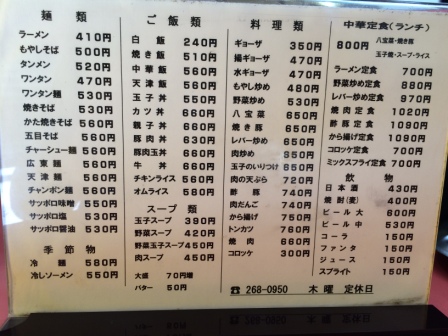 麺類
ラーメン 410円
もやしそば 500円
タンメン 520円
ワンタン 470円
ワンタン麺 530円
焼きそば 530円
かた焼きそば 560円
五目そば 560円
チャーシュー麺 560円
広東麺 560円
天津麺 560円
チャンポン麺 560円
サッポロ味噌 550円
サッポロ塩 530円
サッポロ醤油 530円
季節物
冷麺 580円
冷しソーメン 550円
ご飯類
白飯 240円
焼き飯 510円
中華飯 560円
天津飯 560円
玉子丼 530円
カツ丼 660円
親子丼 560円
豚肉丼 630円
豚肉玉丼 660円
牛丼 560円
チキンライス 560円
オムライス 580円
スープ類
玉子スープ 390円
野菜スープ 420円
野菜玉子スープ 450円
肉スープ 450円
大盛 70円増
バター 50円
料理類
ギョーザ 350円
揚ギョーザ 470円
水ギョーザ 470円
もやし炒め 480円
野菜炒め 530円
八宝菜 650円
焼き豚 650円
レバー炒め 650円
肉炒め 650円
玉子のいりつけ 650円
肉の天ぷら 720円
酢豚 740円
肉だんご 740円
から揚げ 750円
トンカツ 760円
焼肉 660円
コロッケ 300円
☎ 268-0950 木曜 定休日
中華定食(ランチ)
800円 八宝菜・焼き豚
玉子焼・スープ・ライス
ラーメン定食 700円
野菜炒め定食 880円
レバー炒め定食 970円
焼肉定食 1020円
酢豚定食 1090円
から揚げ定食 1090円
コロッケ定食 700円
ミックスフライ定食 700円
飲物
日本酒 430円
焼酎(麦) 400円
ビール大 600円
ビール中 530円
コーラ 150円
ファンタ 150円
ジュース 150円
スプライト 150円